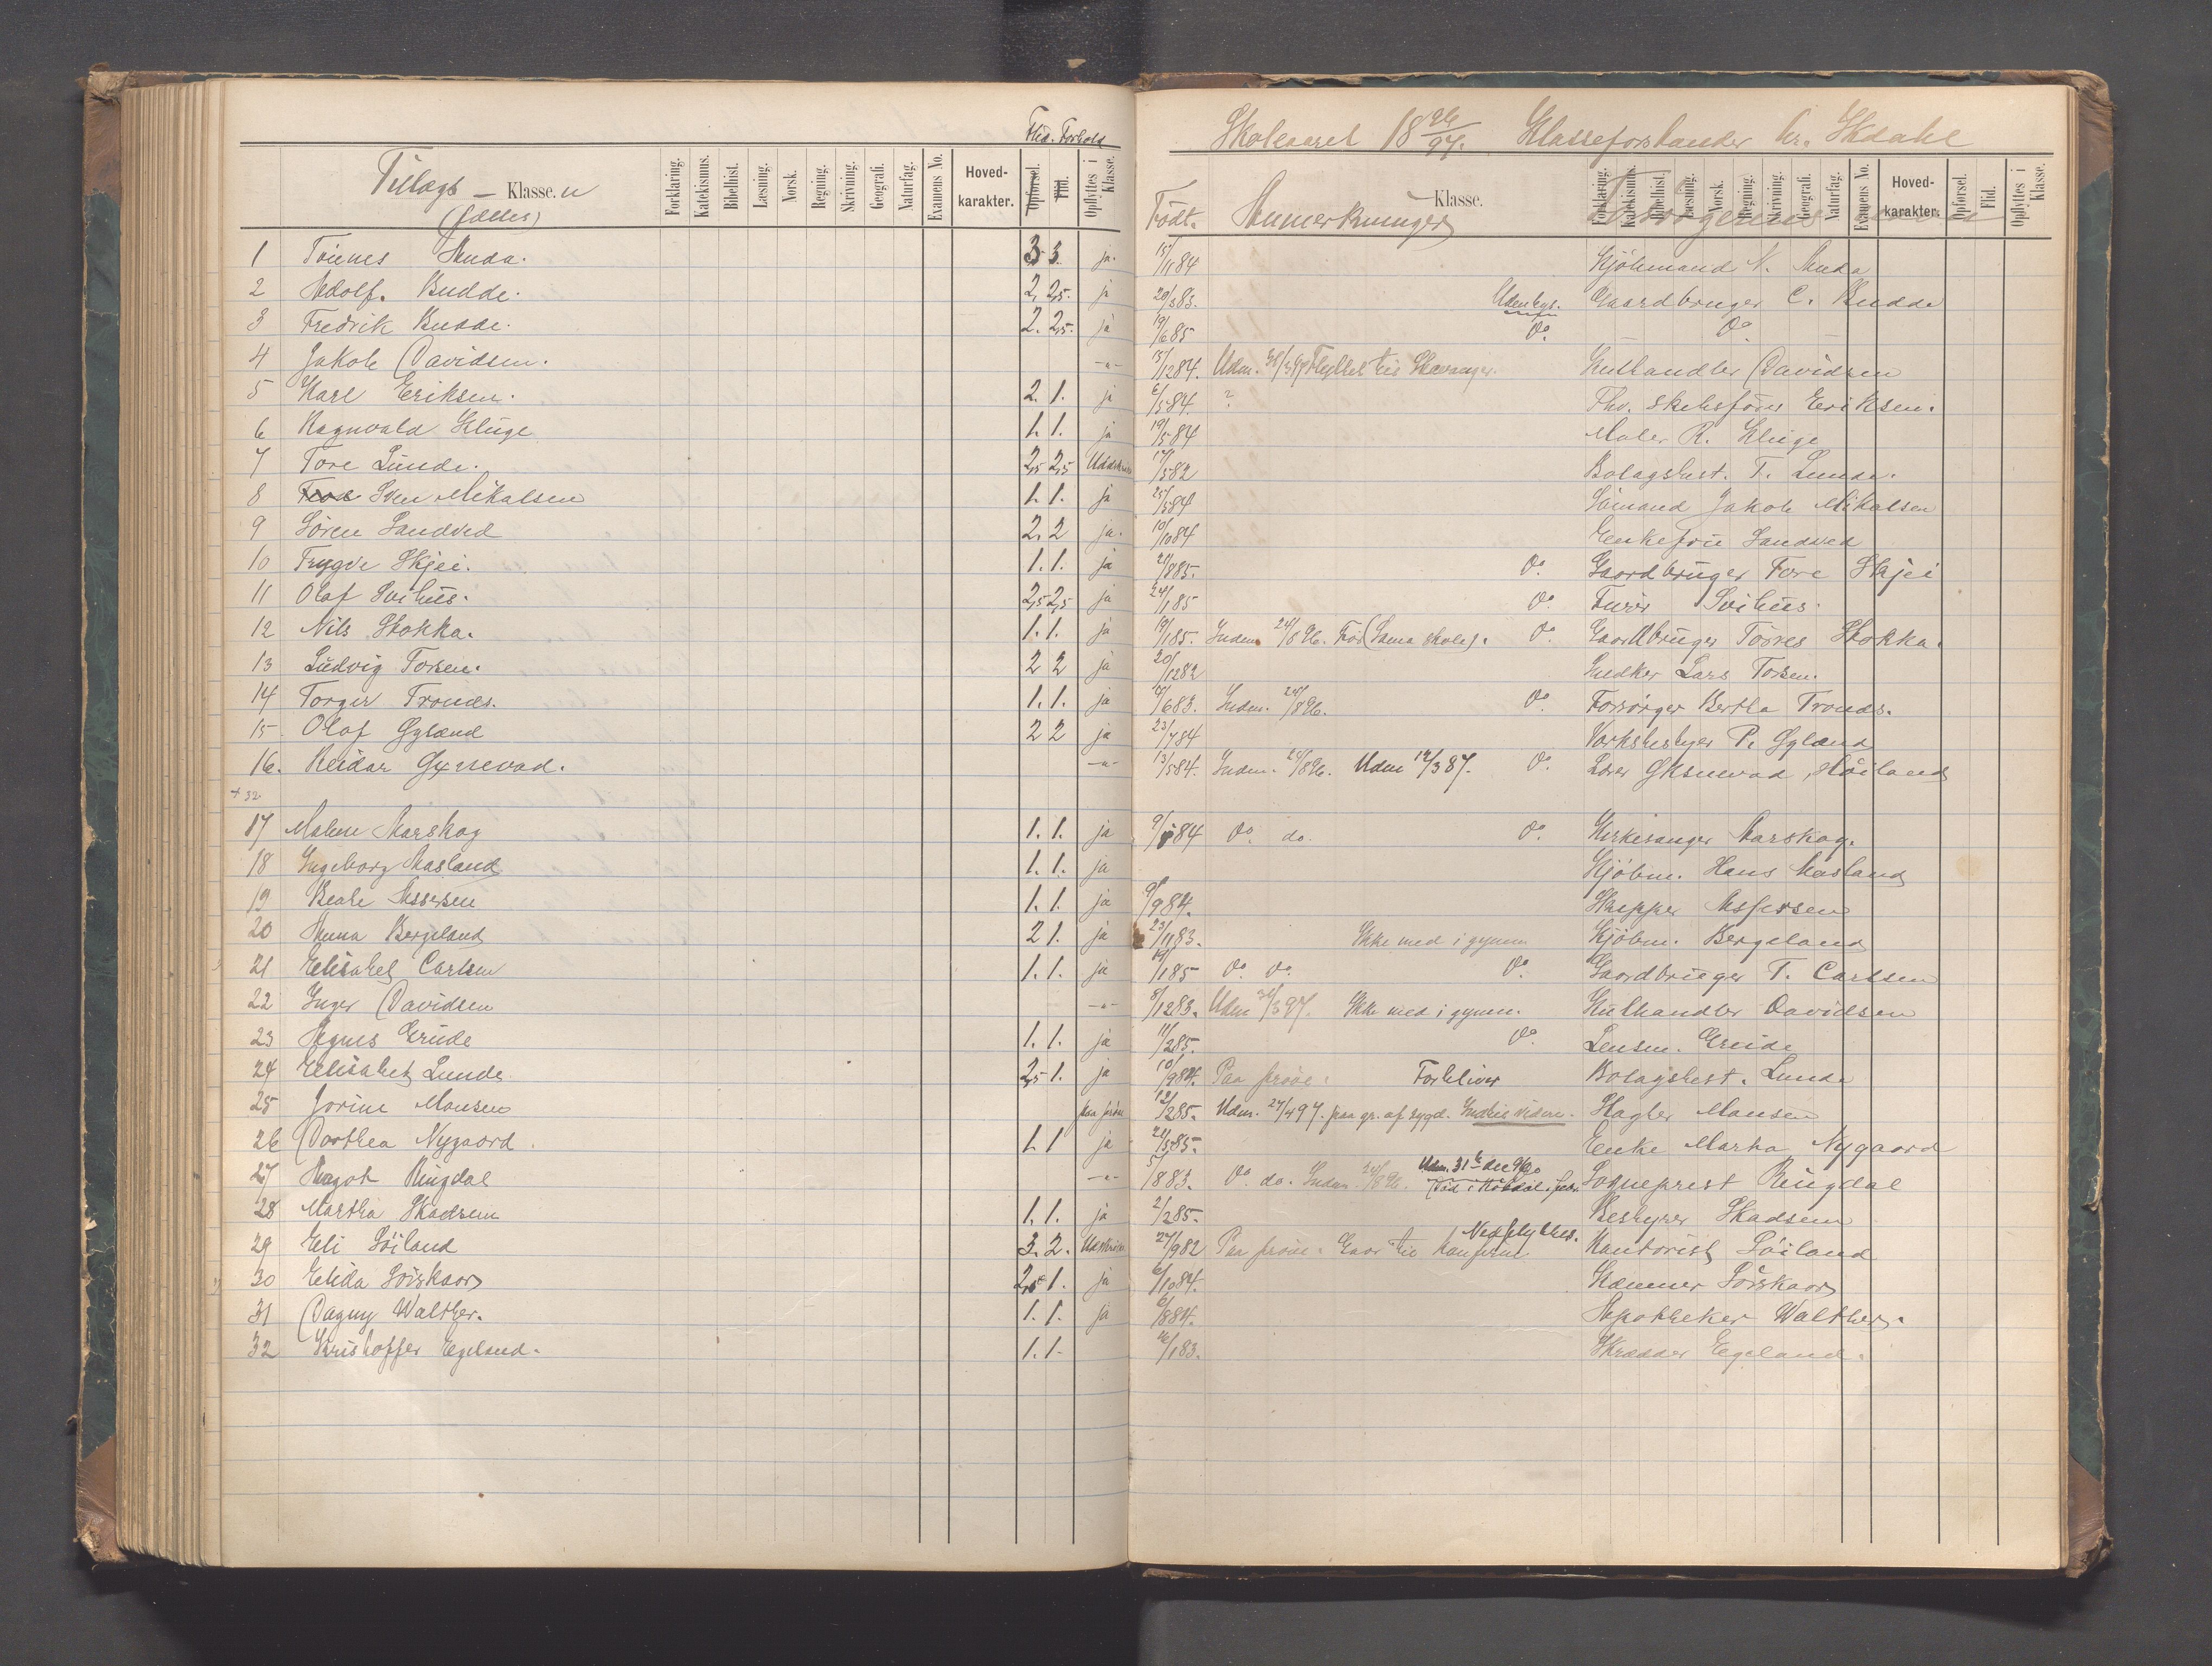 Flid. Forhold
Tillægs - Klasse.n
(fælles)
Forklaring. Katekismus. Bibelhist. Læsning. Norsk. Regning. Skrivning. Geografi. Naturfag. Examens No. Hoved-karakter. Opførsel. Flid. Opflyttes i Klasse.
1 Tönnes Auda. 3 3 ja.
2 Adolf. Budde. 2. 2,5. ja
3 Fredrik Budde. 2. 2,5. ja
4 Jakob Davidsen. -"-
5 Karl Eriksen. 2. 1. ja
6 Ragnvald Kluge 1. 1. ja
7 Tore Lunde. 2,5 2,5
8 Sven Mikalsen 1. 1. ja
9 Sören Sandved 2. 2 ja.
10 Trygve Skjei. 1. 1. ja
11 Olaf Svihus. 2,5 2,5 ja
12 Nils Stokka. 1. 1. ja
13 Ludvig Torsen. 2 2 ja
14 Torger Tronds. 1. 1. ja
15 Olaf Gyland 2 2 ja
16. Reidar -"-
+ 32
17 Malene Aarskog 1. 1. ja
18 Ingeborg Aasland 1. 1. ja
19 Beate Assersen 1. 1. ja
20 Anna Bergeland 2 1. ja
21 Elisabet Carlsen 1. 1. ja
22 Inger Davidsen -"-
23 Agnes Grude 1. 1. ja
24 Elisabet Lunde 2,5 1. ja
25 Jorine Monsen paa pröve
26 Dorthea Nygaard 1. 1 ja
27 Ringdal -"-
28 Martha Skadsem 1. 1. ja
29 Eli Söiland 3. 2.
30 Elida Sörskaar 2,5 1. ja
31 Dagny Walther. 1. 1. ja
32 Kristoffer Egeland. 1. 1.
Skoleaaret 18 96/97. Klasseforstander
Født. Anmerkninger Klasse.
Forklaring. Katekismus. Bibelhist. Læsning. Norsk. Regning. Skrivning. Geografi. Naturfag. Examens No. Hoved-karakter. Opførsel. Flid. Opflyttes i Klasse.
15/11 84 Kjöbmand N. Auda
20/3 83. Udenbys. Gaardbruger C. Budde
19/6 85 Do. Do
15/12 84. Udm. Flyttet til Stavanger. Davidsen
6/5 84. ? Fhv. skibsförer Eriksen.
19/5 84 Maler R. Kluge
17/5 82 Bolagsbest. T. Lunde.
25/5 84 Sömand Jakob Mikalsen
10/10 84 Enkefru Sandved
21/8 85. Do. Gaardbruger Tore Skjei
24/1 85 Do. Svihus.
19/1 85. Indm. 24/8 96. Do. Gaardbruger Torres Stokka.
20/12 82 Lars Torsen.
6 83. Indm. 24/8 96. Do. Forsörger Berthe Tronds.
23/7 84 P. Gyland
13/5 84. Indm. 24/8 96. Udm 12/3 87. Do.
9/ 84 Do. do. Do. Kirkesanger Aarskog.
Kjöbm. Hans Aasland
9/9 84. Skipper Assersen
23/11 83. Ikke med i gymn Kjöbm. Bergeland
1 85 Do. Do. Do. Gaardbruger T. Carlsen
8/12 83. Udm /3 97. Ikke med i gymn. Davidsen
11/2 85. Do. Lensm. Grude
10/9 84. Paa pröve. Forbliver Bolagsbest. Lunde
12/2 85. Udm. 27/4 97. paa gr. af sygd. Monsen
22/5 85. Enke Marta Nygaard
5/ 8 83. Do. do. Indm. 24/8 96. Udm. 31te dec 96 Sogneprest Ringdal
2/2 85. Bestyrer Skadsem
27/9 82 Paa pröve. Nedflyttes. Kontorist Söiland
6/10 84. Kæmner Sörskaar
6/8 84. Apotheker Walther.
1 83. Skrædder Egeland.